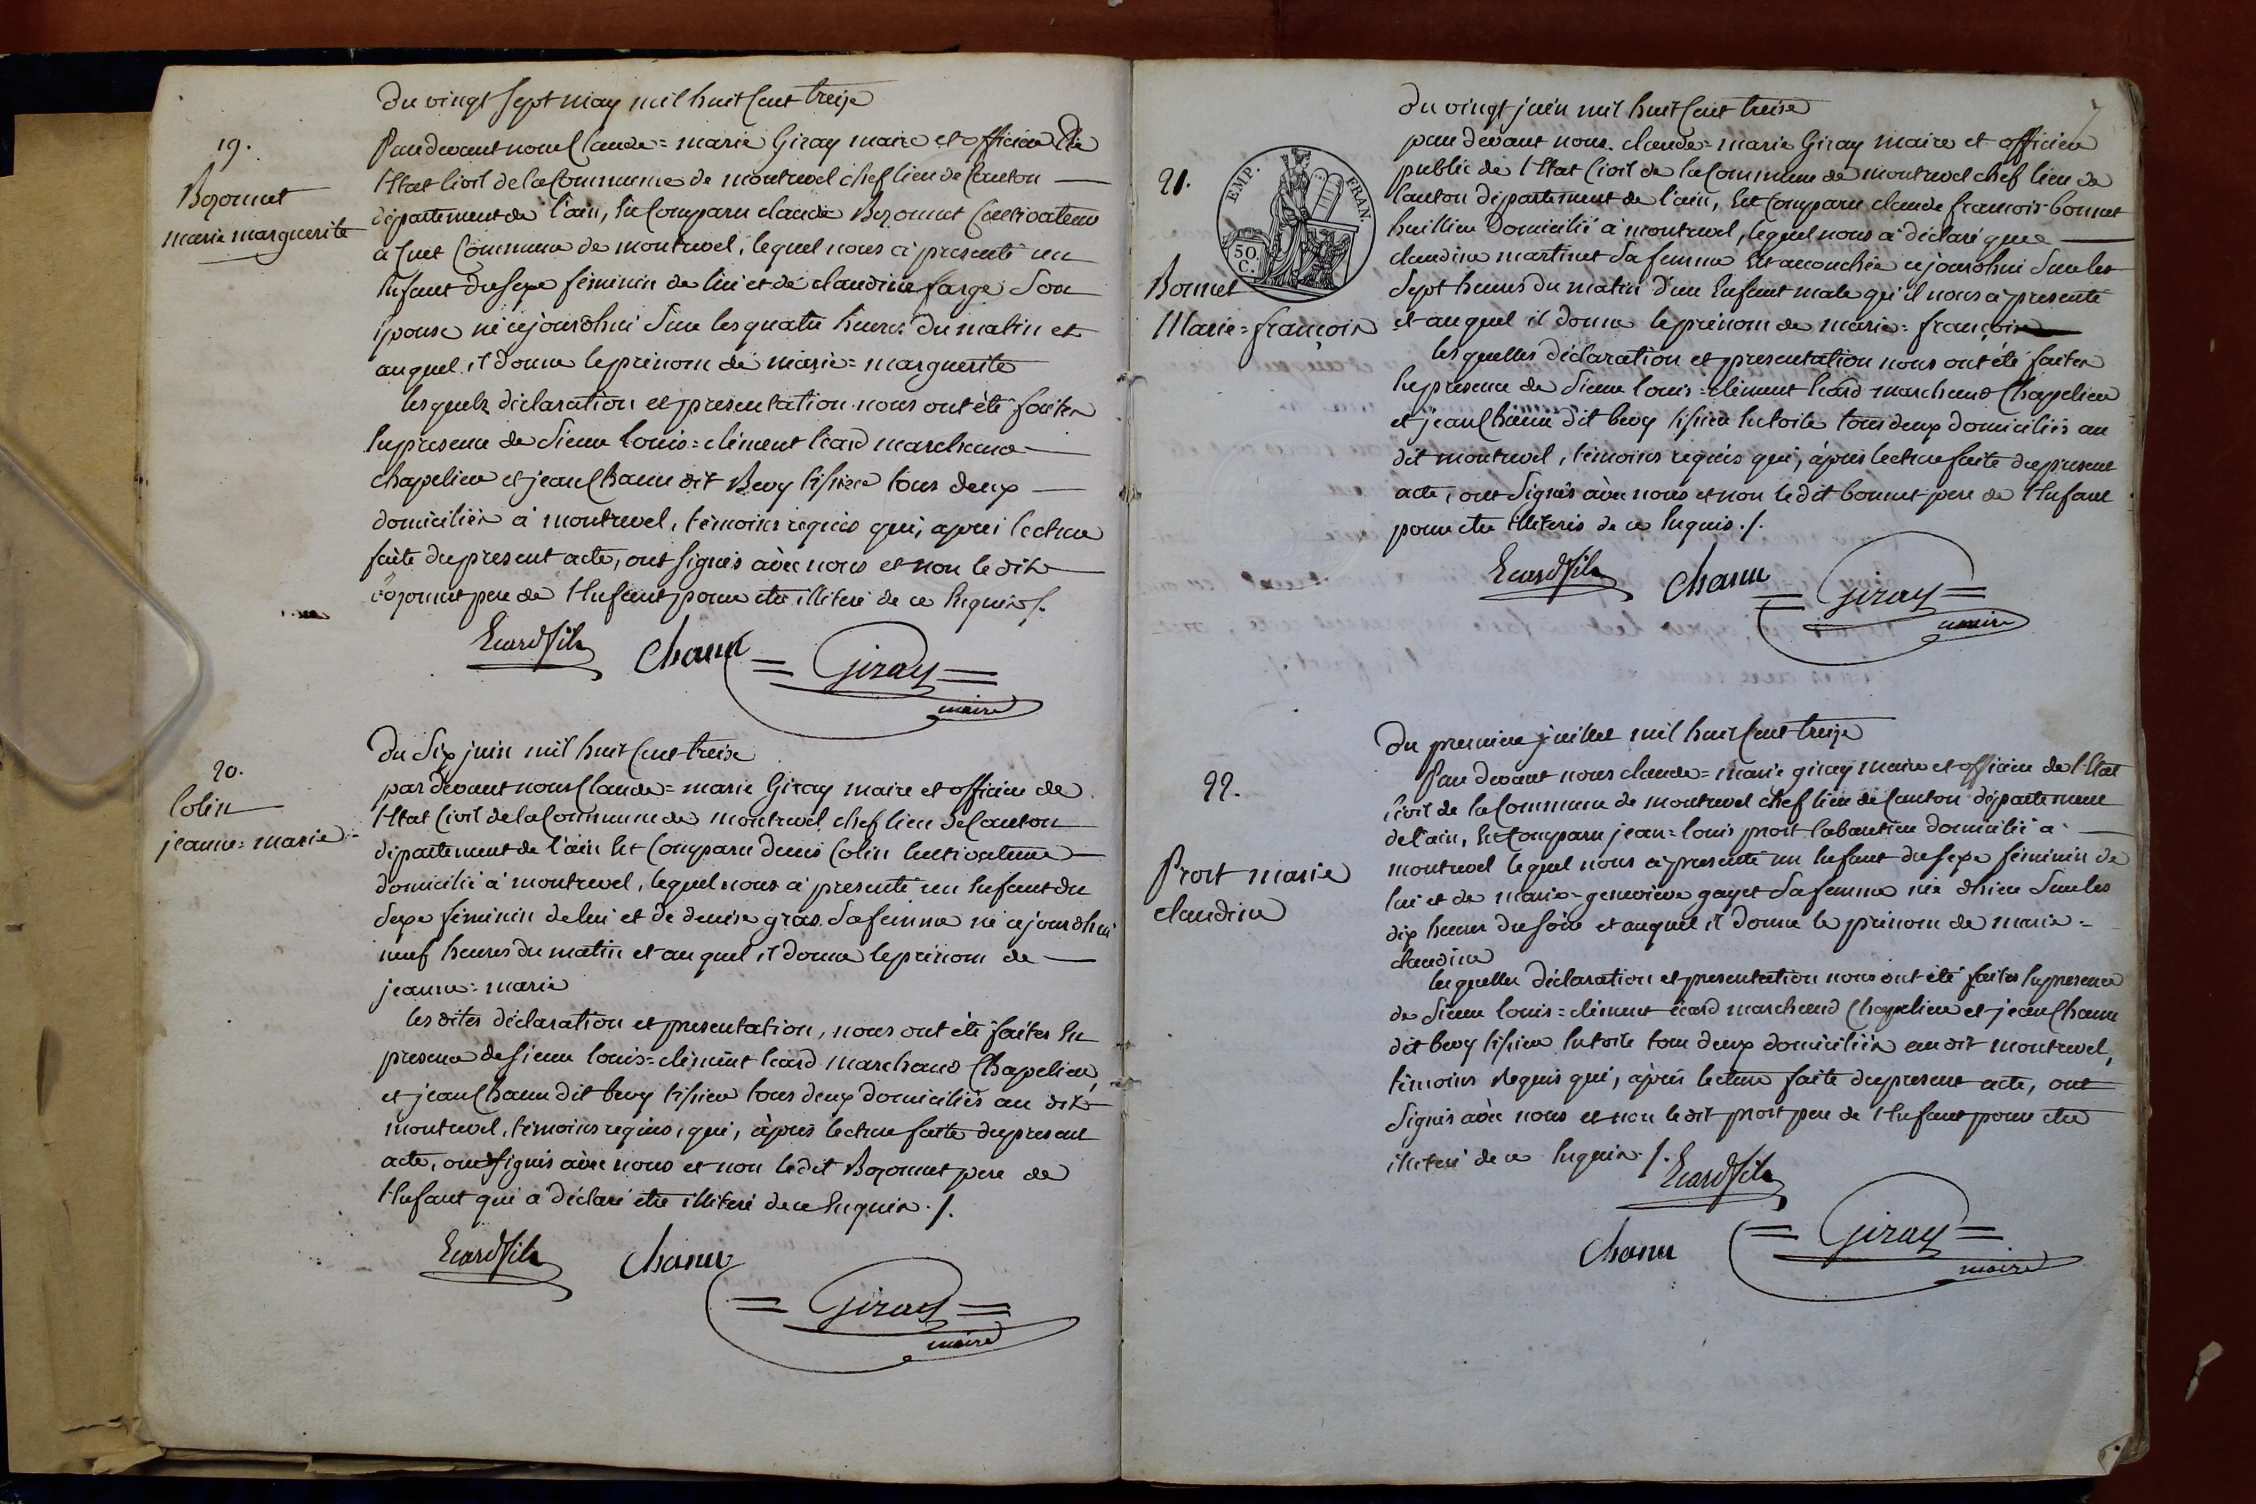 19.
Bozonnet
marie marguerite
Du vingt sept may mil huit cent treize
Pardevant nous Claude = marie Giray maire et officier de
l'Etat Civil de la Commune de montrevel chef lieu de Canton
département de l'ain, est Comparu claude Bozonnet Cultivateur
à Cuet Commune de montrevel, lequel nous à presenté un
Enfant du sexe féminin de lui et de claudine farge Son
épouse né cejourdhui sur les quatre heures du matin et
auquel il donne le prénom de marie = marguerite
lesquels déclaration et presentation nous ont été faites
En presence de Sieur louis = clément Ecard marchand
chapelier et jean Chanu dit Bevy tissier tous deux
domiciliés à montrevel, témoins requis qui, après lecture
faite du present acte, ont signés avec nous et non le dit
Bozonnet pere de l'Enfant pour etre illiteré de ce Enquis ./.
Ecard fils Chanu = Giray =
maire
20.
Colin
jeanne = marie
Du Six juin mil huit cent treize
par devant nous Claude = marie Giray maire et officier de
l'Etat Civil de la Commune de montrevel chef lieu de Canton
département de l'ain Est Comparu denis Colin Cultivateur
domicilié à montrevel, lequel nous à presenté un Enfant du
Sexe féminin de lui et de denise gras Sa femme né cejourdhui
neuf heures du matin et auquel il donne le prénom de
jeanne = marie
les dites déclaration et presentation, nous ont été faites En
presence de sieur louis = clément Ecard marchand Chapelier,
et jean Chanu dit bevy tissier tous deux domiciliés au dit
montrevel, témoins requis, qui, après lecture faite du present
acte, ont signés avec nous et non le dit Bozonnet pere de
l'Enfant qui à déclaré etre illiteré de ce Enquis ./.
Ecard fils Chanu = Giray =
maire
21.
EMP. FRAN.
50 C.
Bonnet
Marie = françois
Du vingt juin mil huit cent treise
par devant nous claude = marie Giray maire et officier
public de l'Etat Civil de la Commune de montrevel chef lieu de
Canton département de l'ain, Est Comparu claude françois bonnet
huillier Domicilié à montrevel, lequel nous à déclaré que
claudine martinet Sa femme Est accouchée cejourdhui Sur les
Sept heures du matin d'un Enfant male qu'il nous à presenté
et auquel il donne le prénom de marie = françois
lesquelles déclaration et presentation nous ont été faites
En presence de Sieur louis = clément Ecard marchand Chapelier
et jean Chanu dit bevy tissier En toile tous deux domiciliés au
dit montrevel, témoins requis qui, après lecture faite du present
acte, ont Signés avec nous et non le dit bonnet pere de l'Enfant
pour etre illiteré de ce Enquis ./.
Ecard fils Chanu = Giray =
maire
22.
Prost marie
claudine
Du premier juillet mil huit cent treize
Par devant nous claude = marie giray maire et officier de l'Etat
Civil de la Commune de montrevel chef lieu de Canton département
de l'ain, Est Comparu jean = louis prost laboureur domicilié à
montrevel lequel nous à presenté un Enfant du sexe féminin de
lui et de marie = geneviève gayet Sa femme née d'hier Sur les
dix heures du soir et auquel il donne le prénom de marie =
claudine
lesquelles déclaration et presentation nous ont été faites En presence
de Sieur louis = clément Ecard marchand Chapelier et jean Chanu
dit bevy tissier En toile tous deux domiciliés au dit montrevel,
témoins Requis qui, après lecture faite du present acte, ont
Signés avec nous et non le dit prost pere de l'Enfant pour etre
illiteré de ce Enquis ./. Ecard fils
Chanu = Giray =
maire